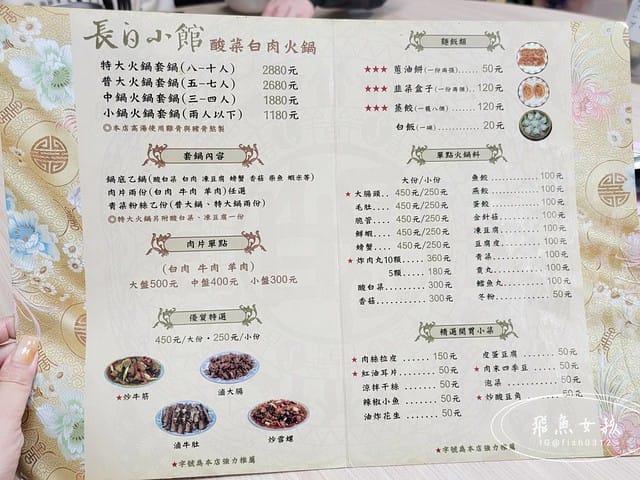 長白小館 酸菜白肉火鍋
特大火鍋套鍋(八~十人) 2880元
普大火鍋套鍋(五~七人) 2680元
中鍋火鍋套鍋(三~四人) 1880元
小鍋火鍋套鍋(兩人以下) 1180元
◎本店高湯使用雞骨與豬骨熬製
套鍋內容
鍋底乙鍋(酸白菜 白肉 凍豆腐 螃蟹 香菇 柴魚 蝦米等)
肉片兩份(白肉 牛肉 羊肉)任選
青菜粉絲乙份(普大鍋、特大鍋兩份)
◎特大火鍋另附酸白菜、凍豆腐一份
肉片單點
(白肉 牛肉 羊肉)
大盤500元 中盤400元 小盤300元
優質特選
450元/大份·250元/小份
★炒牛筋
滷大腸
滷牛肚
炒雪螺
★字號為本店強力推薦
麵飯類
★★★ 蔥油餅(一份兩張)......50元
★★★ 韭菜盒子(一份兩個)..120元
★★★ 蒸餃(一籠八個)......120元
白飯(一碗)......20元
單點火鍋料
大份/小份
★大腸頭..450元/250元
毛肚....450元/250元
脆管....450元/250元
鮮蝦....450元/250元
螃蟹....450元/250元
★炸肉丸10顆......360元
5顆......180元
酸白菜......300元
香菇......300元
魚餃......100元
燕餃......100元
蛋餃......100元
金針菇......100元
凍豆腐......100元
豆腐皮......100元
青菜......100元
貢丸......100元
鱈魚丸......100元
冬粉......50元
精選開胃小菜
★肉絲拉皮......150元
★紅油耳片......50元
涼拌干絲......50元
辣椒小魚......50元
油炸花生......50元
皮蛋豆腐......50元
★肉末四季豆..50元
泡菜......50元
★炒酸豆角......50元
★字號為本店強力推薦
飛魚女孩
IG@fish03125